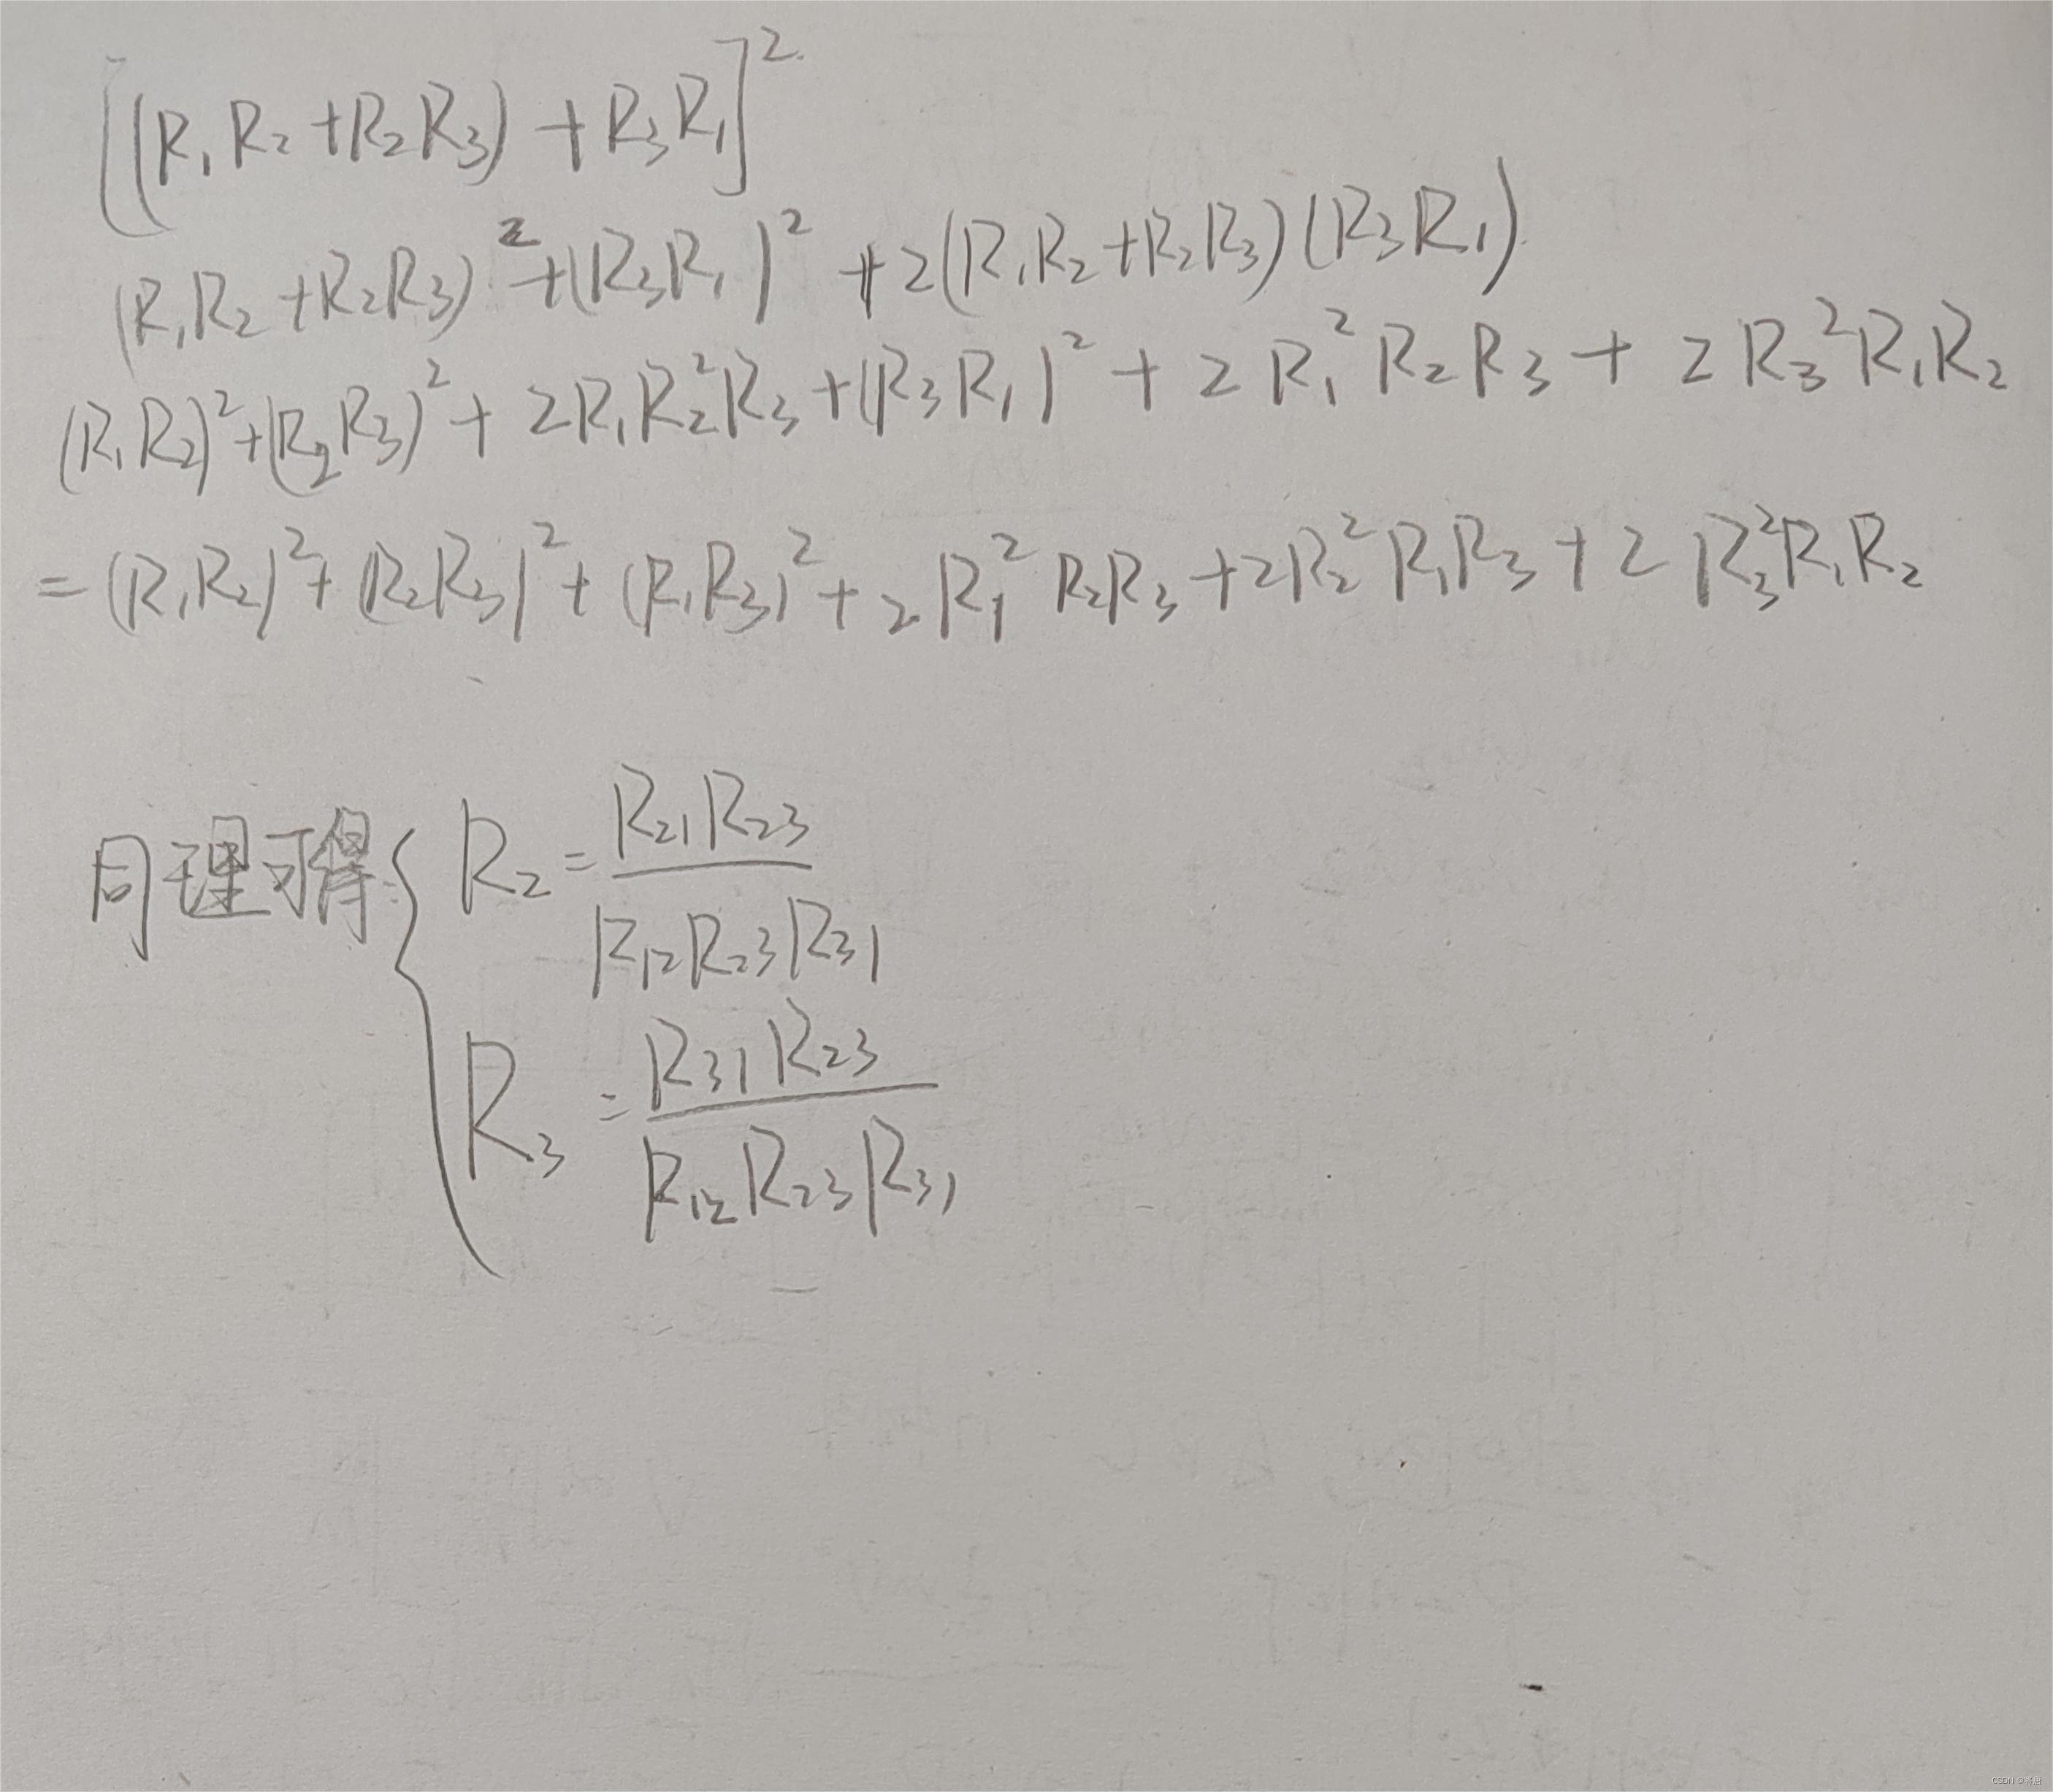 [(R₁R₂+R₂R₃)+R₃R₁]²
(R₁R₂+R₂R₃)²+(R₃R₁)²+2(R₁R₂+R₂R₃)(R₃R₁)
(R₁R₂)²+(R₂R₃)²+2R₁R₂²R₃+(R₃R₁)²+2R₁²R₂R₃+2R₃²R₁R₂
=(R₁R₂)²+(R₂R₃)²+(R₁R₃)²+2R₁²R₂R₃+2R₂²R₁R₃+2R₃²R₁R₂
同理可得{R₂=R₂₁R₂₃
R₁₂R₂₃R₃₁
R₃=R₃₁R₂₃
R₁₂R₂₃R₃₁